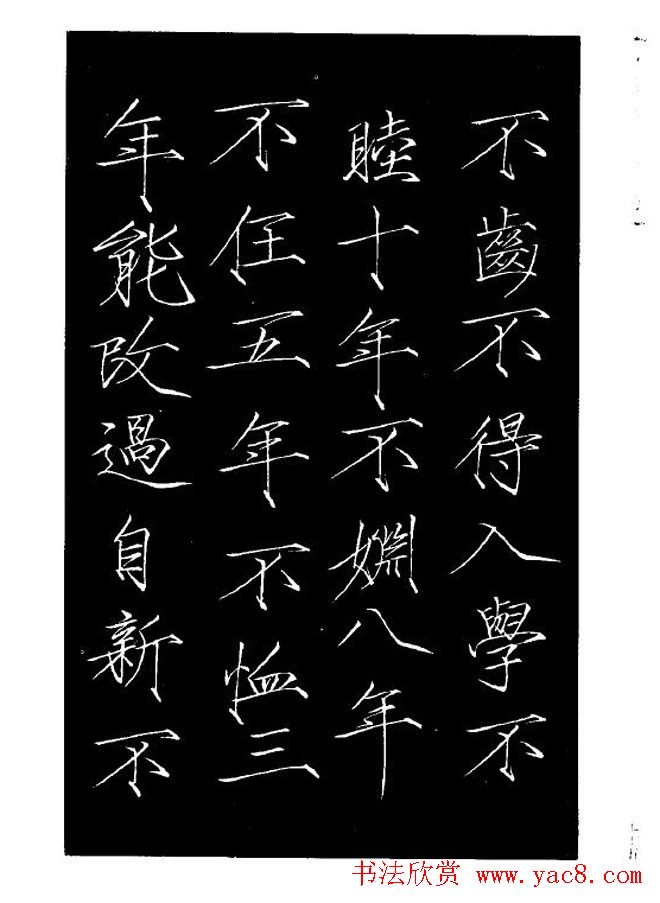 不齒不得入學不
睦十年不婣八年
不任五年不恤三
年能改過自新不
书法欣赏 www.yac8.com